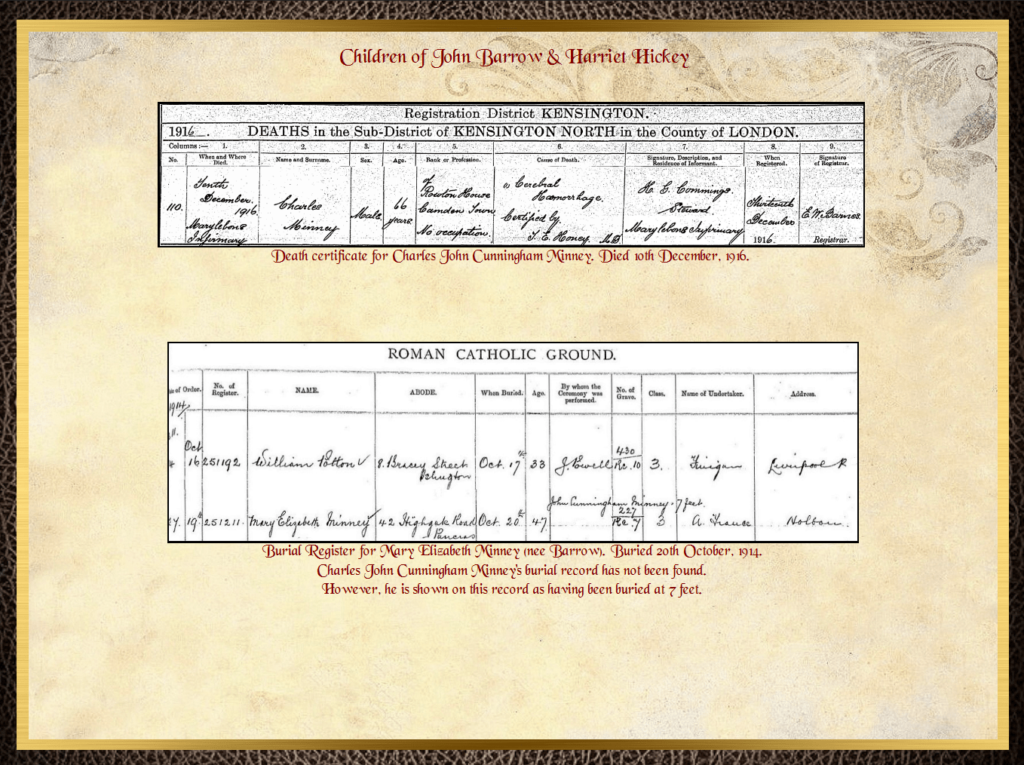 Children of John Barrow & Harriet Hickey
Registration District KENSINGTON.
1916. DEATHS in the Sub-District of KENSINGTON NORTH in the County of LONDON.
Columns :— 1. 2. 3. 4. 5. 6. 7. 8. 9.
No. When and Where Died. Name and Surname. Sex. Age. Rank or Profession. Cause of Death. Signature, Description, and Residence of Informant. When Registered. Signature of Registrar.
110. Tenth December 1916 Marylebone Infirmary Charles Minney Male 66 years Rowton House Camden Town No occupation. Cerebral Hæmorrhage. Certified by T. E. Honey. M.B. Steward Marylebone Infirmary Thirteenth December 1916. E. W. Barnes Registrar.
Death certificate for Charles John Cunningham Minney. Died 10th December, 1916.
ROMAN CATHOLIC GROUND.
of Order. No. of Register. NAME. ABODE. When Buried. Age. By whom the Ceremony was performed. No. of Grave. Class. Name of Undertaker. Address.
1914
Oct 16 251192 William 8. Street Oct. 17th 33 430 Re. 10 3. Liverpool R
John Cunningham Minney. 7 feet.
19th 251211. Mary Elizabeth Minney 42 Highgate Road Pancras Oct. 20th 47 227 Re. 7 3 A. France Holborn.
Burial Register for Mary Elizabeth Minney (nee Barrow). Buried 20th October, 1914.
Charles John Cunningham Minney's burial record has not been found.
However, he is shown on this record as having been buried at 7 feet.